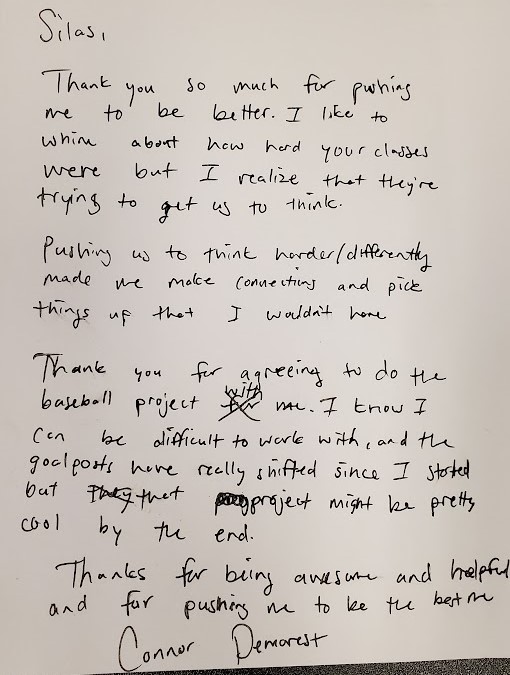 Silas,
Thank you so much for pushing
me to be better. I like to
whine about how hard your classes
were but I realize that they're
trying to get us to think.
Pushing us to think harder/differently
made me make connections and pick
things up that I wouldn't have
Thank you for agreeing to do the
baseball project with me. I know I
can be difficult to work with, and the
goalposts have really shifted since I started
but that project might be pretty
cool by the end.
Thanks for being awesome and helpful
and for pushing me to be the best me
Connor Demarest